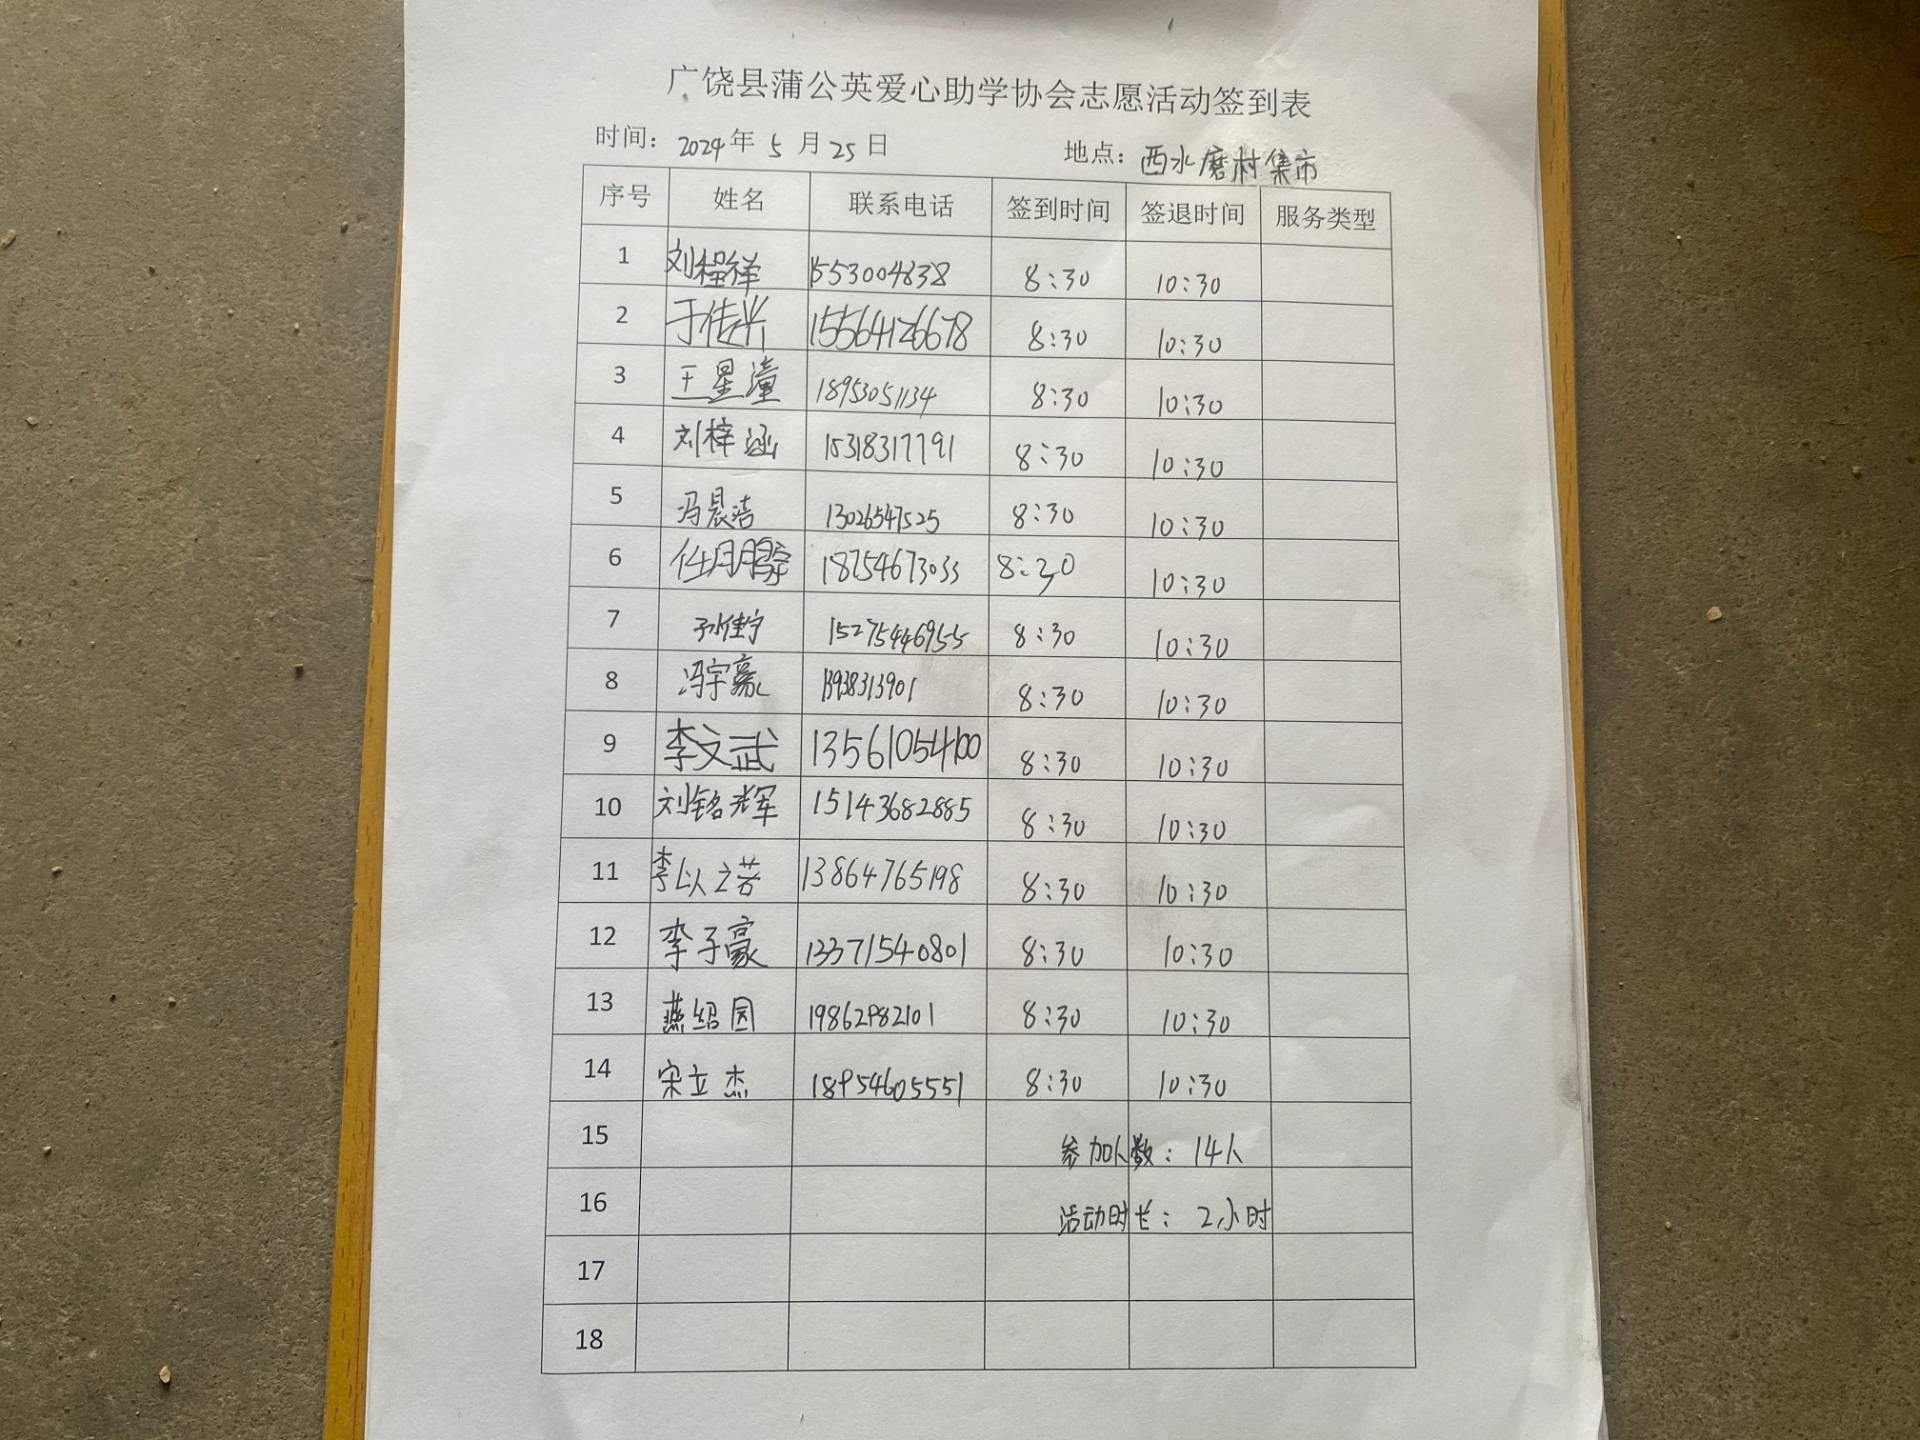 广饶县蒲公英爱心助学协会志愿活动签到表
时间： 2024 年 5 月 25 日 地点：西水磨村集市
序号 姓名 联系电话 签到时间 签退时间 服务类型
1 刘程祥 1553004838 8:30 10:30
2 于佳兴 15564126678 8:30 10:30
3 王星潼 18953051134 8:30 10:30
4 刘梓涵 15318317791 8:30 10:30
5 冯晨洁 13026547525 8:30 10:30
6 18754673033 8:30 10:30
7 孙佳宁 15275446955 8:30 10:30
8 冯宇豪 8:30 10:30
9 李文武 13561054100 8:30 10:30
10 刘铭辉 15143682885 8:30 10:30
11 李以之若 13864765198 8:30 10:30
12 李子豪 13371540801 8:30 10:30
13 燕绍园 19862982101 8:30 10:30
14 宋立杰 18954605551 8:30 10:30
15 参加人数：14人
16 活动时长：2小时
17
18